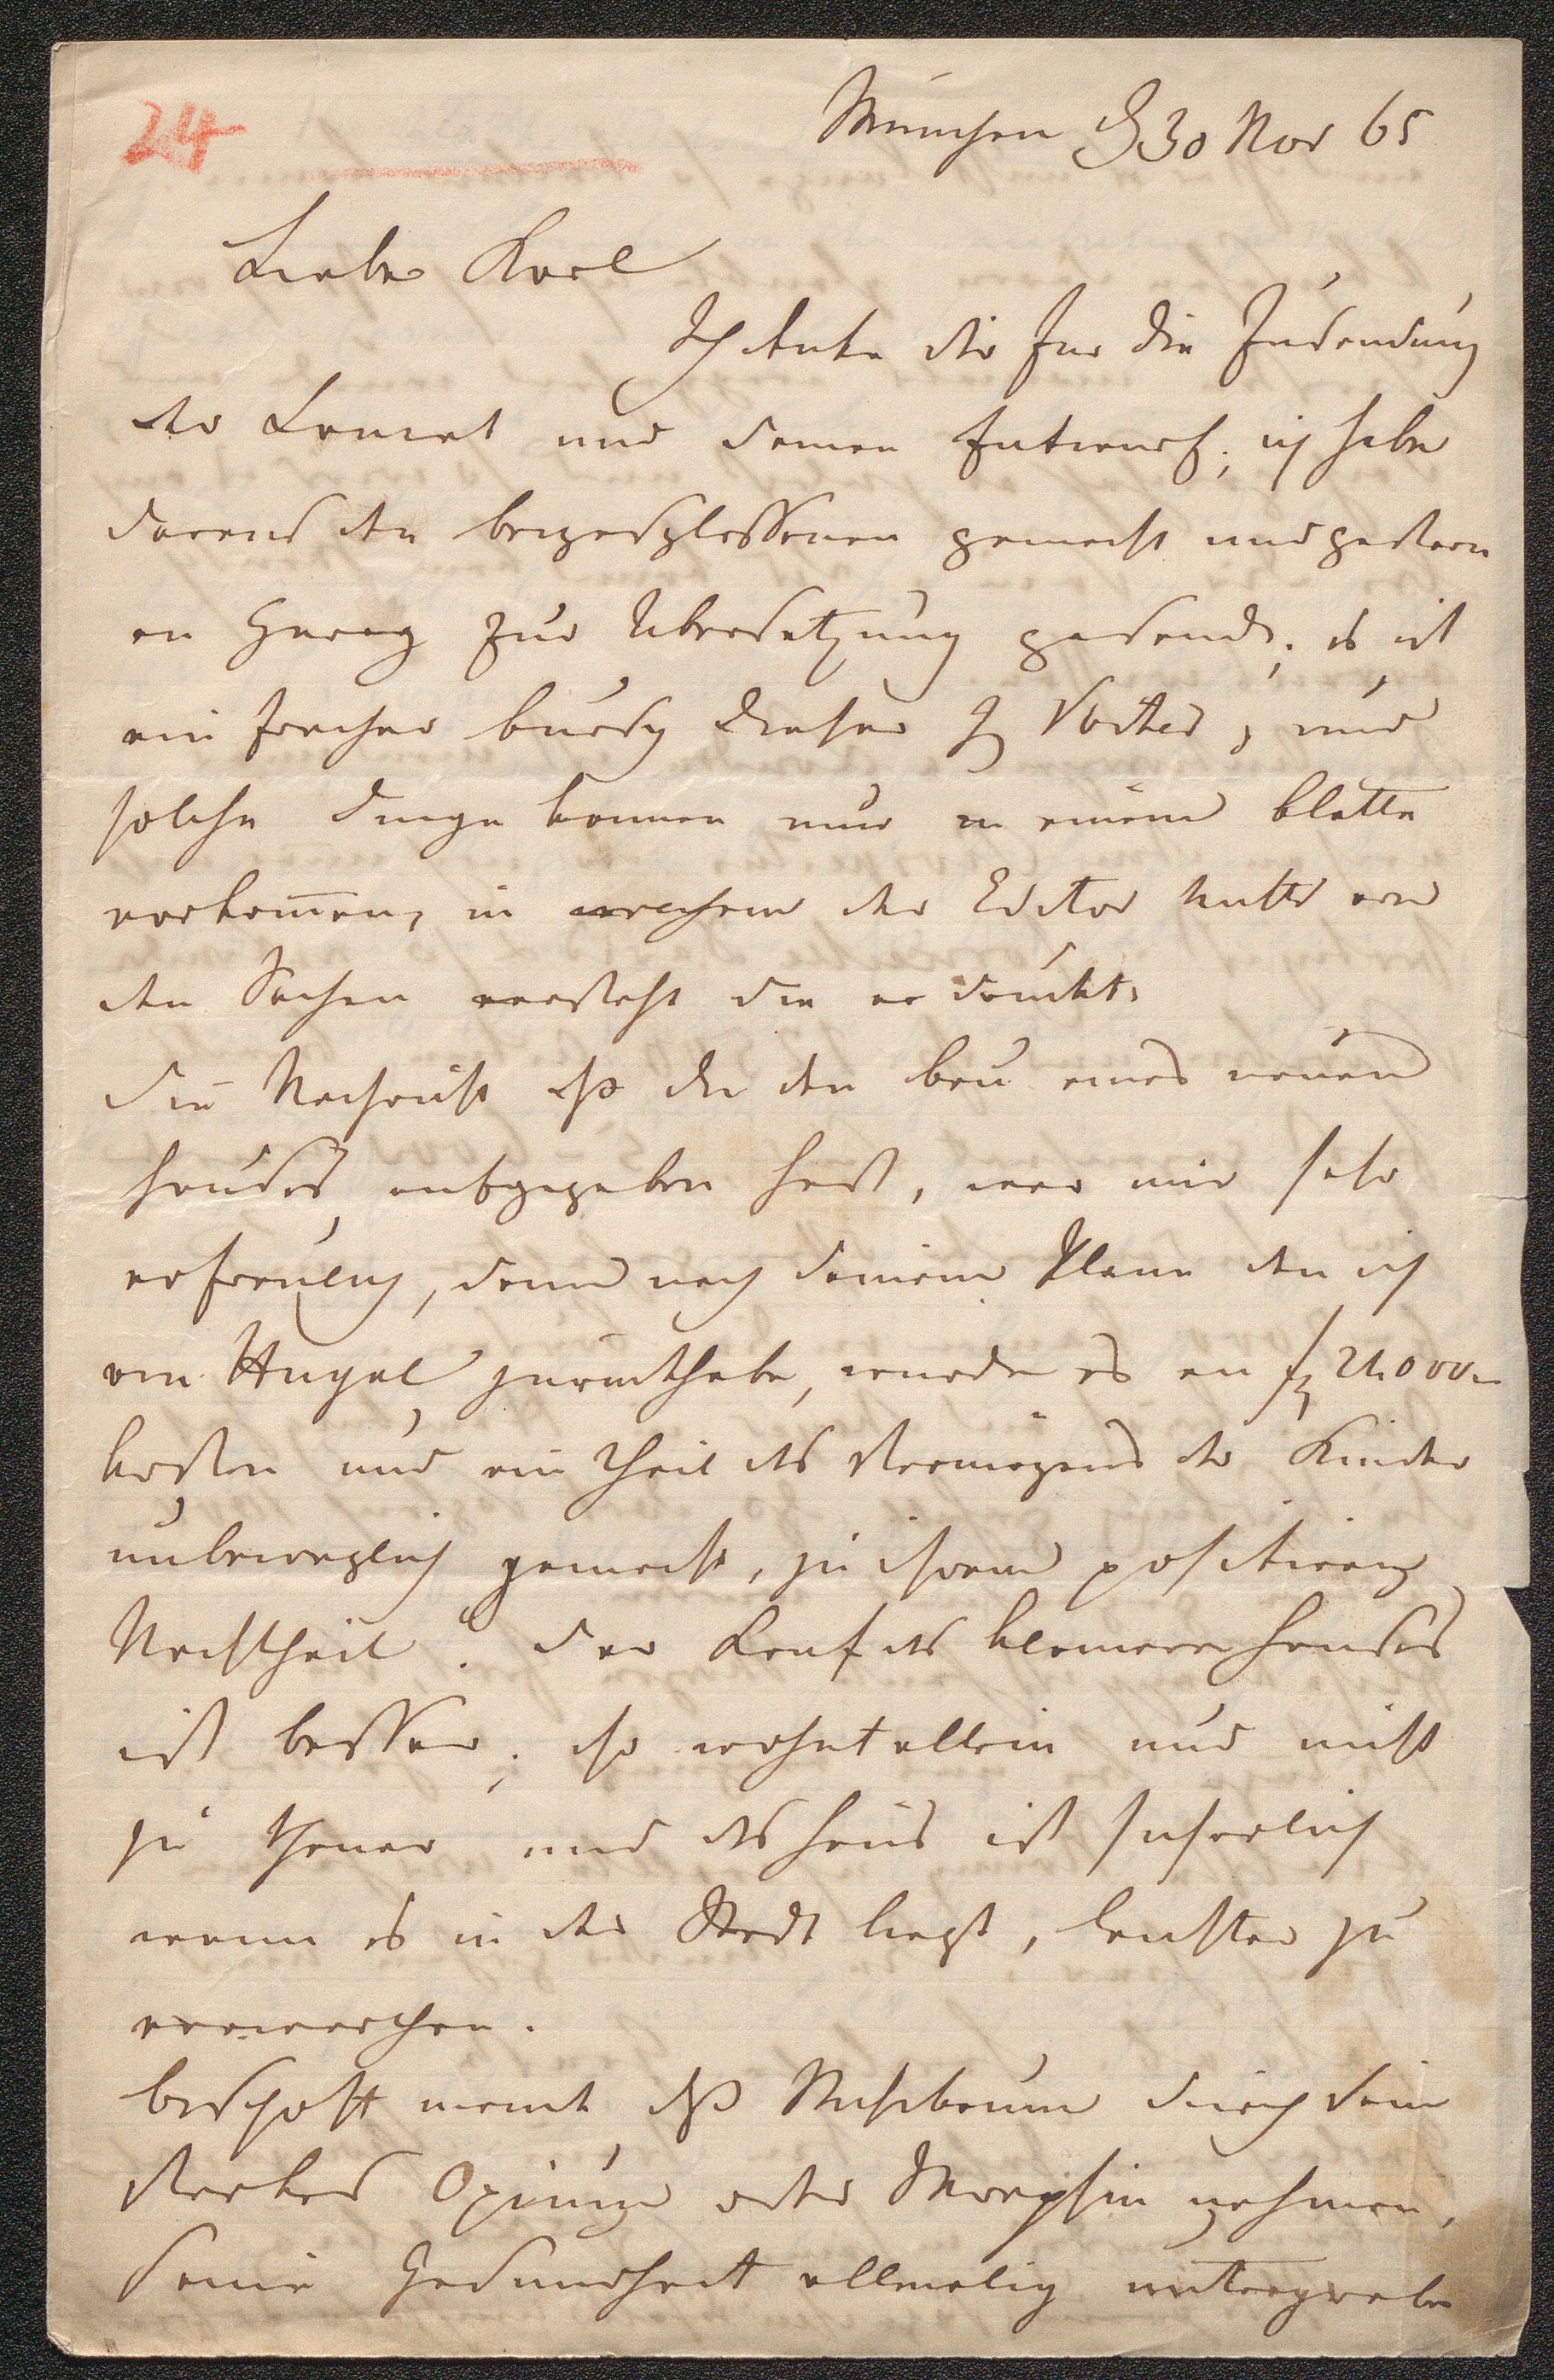 24
München d 30 Nov 65
Lieber Karl
Ich danke dir für die Zusendung
der Lancet und deinen Entwurf; ich habe
daraus den beigeschlossenen gemacht und gestern
an Georg zur Übersetzung gesendet; es ist
ein frecher bursch dieser H Voelker, und
solche dinge können nur in einem blatte
vorkommen, in welchem der Editor nichts von
den Sachen versteht die er druckt.
die Nachricht daß du den bau eines neuen
hauses aufgegeben hast, war mir sehr
erfreulich, denn nach deinem Plane den ich
von Hügel zurückhabe, würde es an f 21,000
kosten und ein Theil des Vermögens der Kinder
unbeweglich gemacht, zu ihrem positiven
Nachtheil. der Kauf des kleineren hauses
ist besser; ihr wohnt allein und nicht
zu theuer und das haus ist sicherlich
wenn es in der Stadt liegt, leichter zu
verwerthen.
bischoff meint daß Nussbaum durch sein
starkes Opium oder Morphin nehmen,
seine Gesundheit allmälig untergrabe